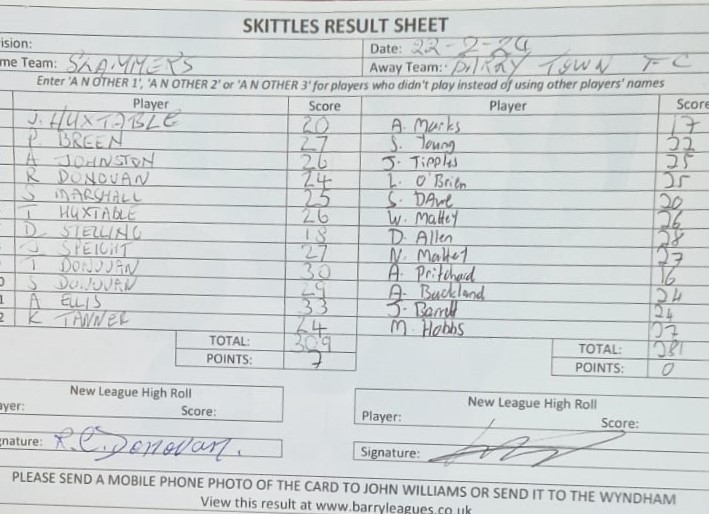 SKITTLES RESULT SHEET
ision:
Date: 22-2-24
me Team: SLAMMERS
Away Team: BARRY TOWN F C
Enter 'A N OTHER 1', 'A N OTHER 2' or 'A N OTHER 3' for players who didn't play instead of using other players' names
Player Score Player Score
J. HUXTABLE 20 A. Marks 17
P BREEN 27 S. Young 22
A JOHNSTON 26 J. Tipples 25
R DONOVAN 24 L. O'Brien 25
S MARSHALL 25 S. DAve 20
T HUXTABLE 26 W. Mattey 26
D STELLING 18 D. Allen 28
J SPEIGHT 27 N. Mattey 27
T DONOVAN 30 A. Pritchard 16
0 S DONOVAN 29 A. Buckland 24
1 A ELLIS 33 J. Barrett 24
2 K TANNER 24 M. Hobbs 27
TOTAL: 309 TOTAL: 281
POINTS: 7 POINTS: 0
New League High Roll New League High Roll
ayer: Score: Player: Score:
nature: R.C. Donovan. Signature:
PLEASE SEND A MOBILE PHONE PHOTO OF THE CARD TO JOHN WILLIAMS OR SEND IT TO THE WYNDHAM
View this result at www.barryleagues.co.uk